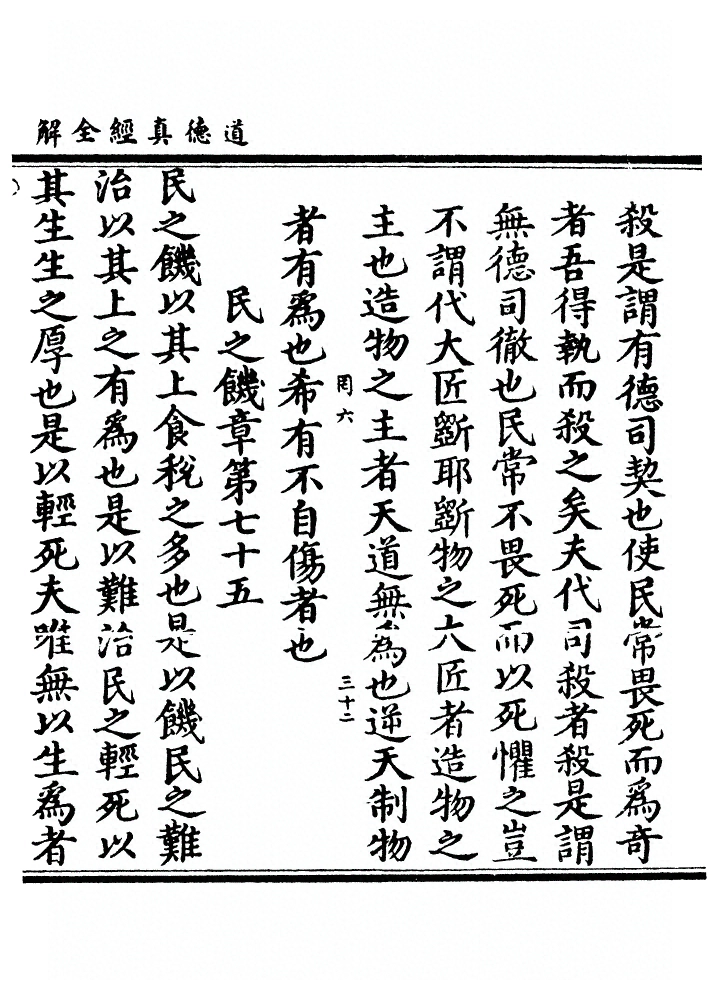 道德真經全解
殺是謂有德司契也使民常畏死而爲奇
者吾得執而殺之矣夫代司殺者殺是謂
無德司徹也民常不畏死而以死懼之豈
不謂代大匠斲耶斲物之大匠者造物之
主也造物之主者天道無爲也逆天制物
罔六
三十二
者有爲也希有不自傷者也
民之饑章第七十五
民之饑以其上食稅之多也是以饑民之難
治以其上之有爲也是以難治民之輕死以
其生生之厚也是以輕死夫唯無以生爲者